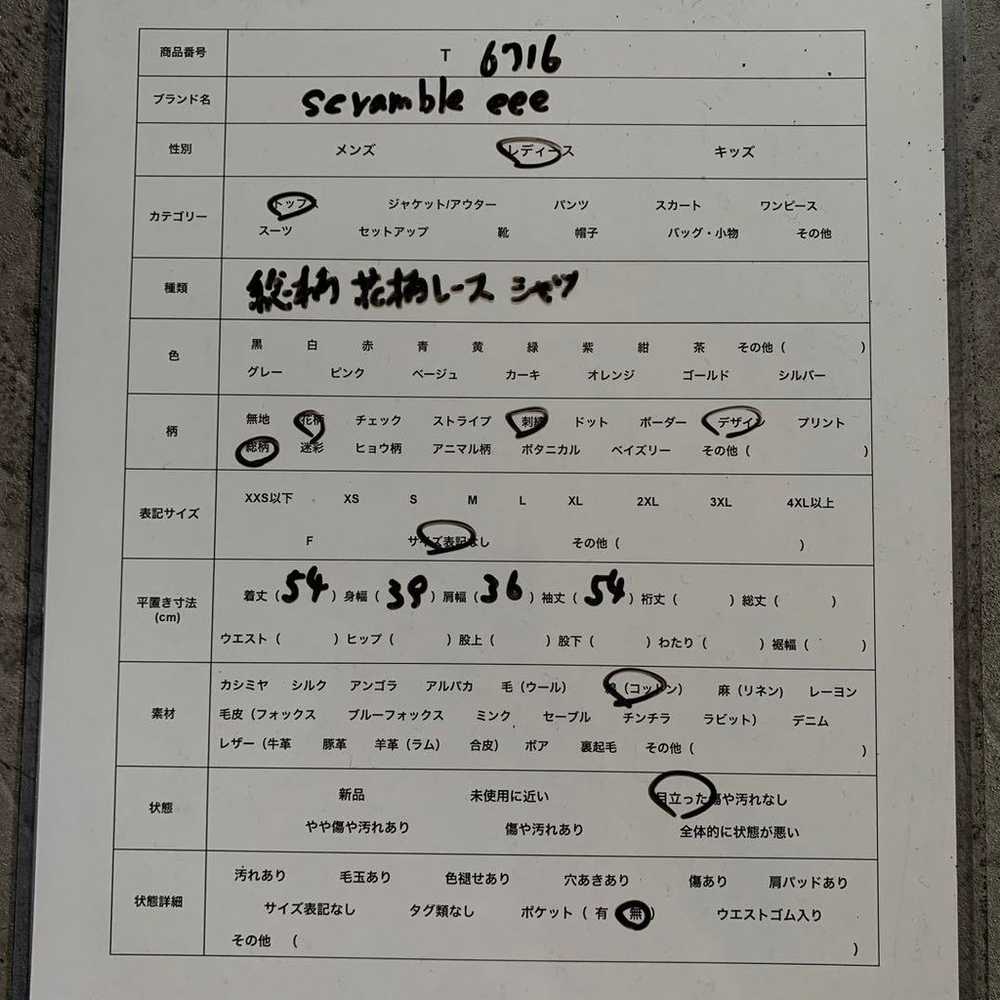 商品番号 T 6716
ブランド名 scramble eee
性別 メンズ レディース キッズ
カテゴリー トップス ジャケット/アウター パンツ スカート ワンピース
スーツ セットアップ 靴 帽子 バッグ・小物 その他
種類 総柄 花柄レース シャツ
色 黒 白 赤 青 黄 緑 紫 紺 茶 その他（ ）
グレー ピンク ベージュ カーキ オレンジ ゴールド シルバー
柄 無地 花柄 チェック ストライプ 刺繍 ドット ボーダー デザイン プリント
総柄 迷彩 ヒョウ柄 アニマル柄 ボタニカル ペイズリー その他（ ）
表記サイズ XXS以下 XS S M L XL 2XL 3XL 4XL以上
F サイズ表記なし その他（ ）
平置き寸法 (cm) 着丈（54）身幅（39）肩幅（36）袖丈（54）裄丈（ ）総丈（ ）
ウエスト（ ）ヒップ（ ）股上（ ）股下（ ）わたり（ ）裾幅（ ）
素材 カシミヤ シルク アンゴラ アルパカ 毛（ウール） 綿（コットン） 麻（リネン） レーヨン
毛皮（フォックス ブルーフォックス ミンク セーブル チンチラ ラビット） デニム
レザー（牛革 豚革 羊革（ラム） 合皮） ボア 裏起毛 その他（ ）
状態 新品 未使用に近い 目立った傷や汚れなし
やや傷や汚れあり 傷や汚れあり 全体的に状態が悪い
状態詳細 汚れあり 毛玉あり 色褪せあり 穴あきあり 傷あり 肩パッドあり
サイズ表記なし タグ類なし ポケット（ 有 無 ） ウエストゴム入り
その他 （ ）